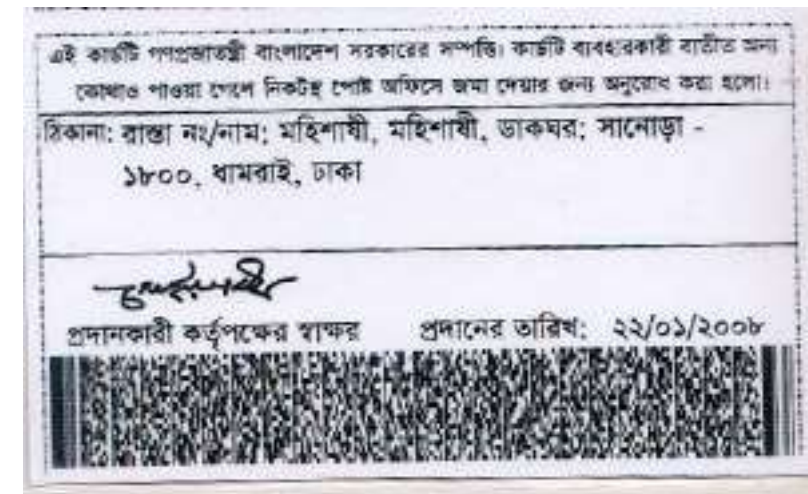 এই কার্ডটি গণপ্রজাতন্ত্রী বাংলাদেশ সরকারের সম্পত্তি। কার্ডটি ব্যবহারকারী ব্যতীত অন্য
কোথাও পাওয়া গেলে নিকটস্থ পোষ্ট অফিসে জমা দেয়ার জন্য অনুরোধ করা হলো।
ঠিকানা: রাস্তা নং/নাম: মহিশাষী, মহিশাষী, ডাকঘর: সানোড়া -
১৮০০, ধামরাই, ঢাকা
প্রদানকারী কর্তৃপক্ষের স্বাক্ষর প্রদানের তারিখ: ২২/০১/২০০৮